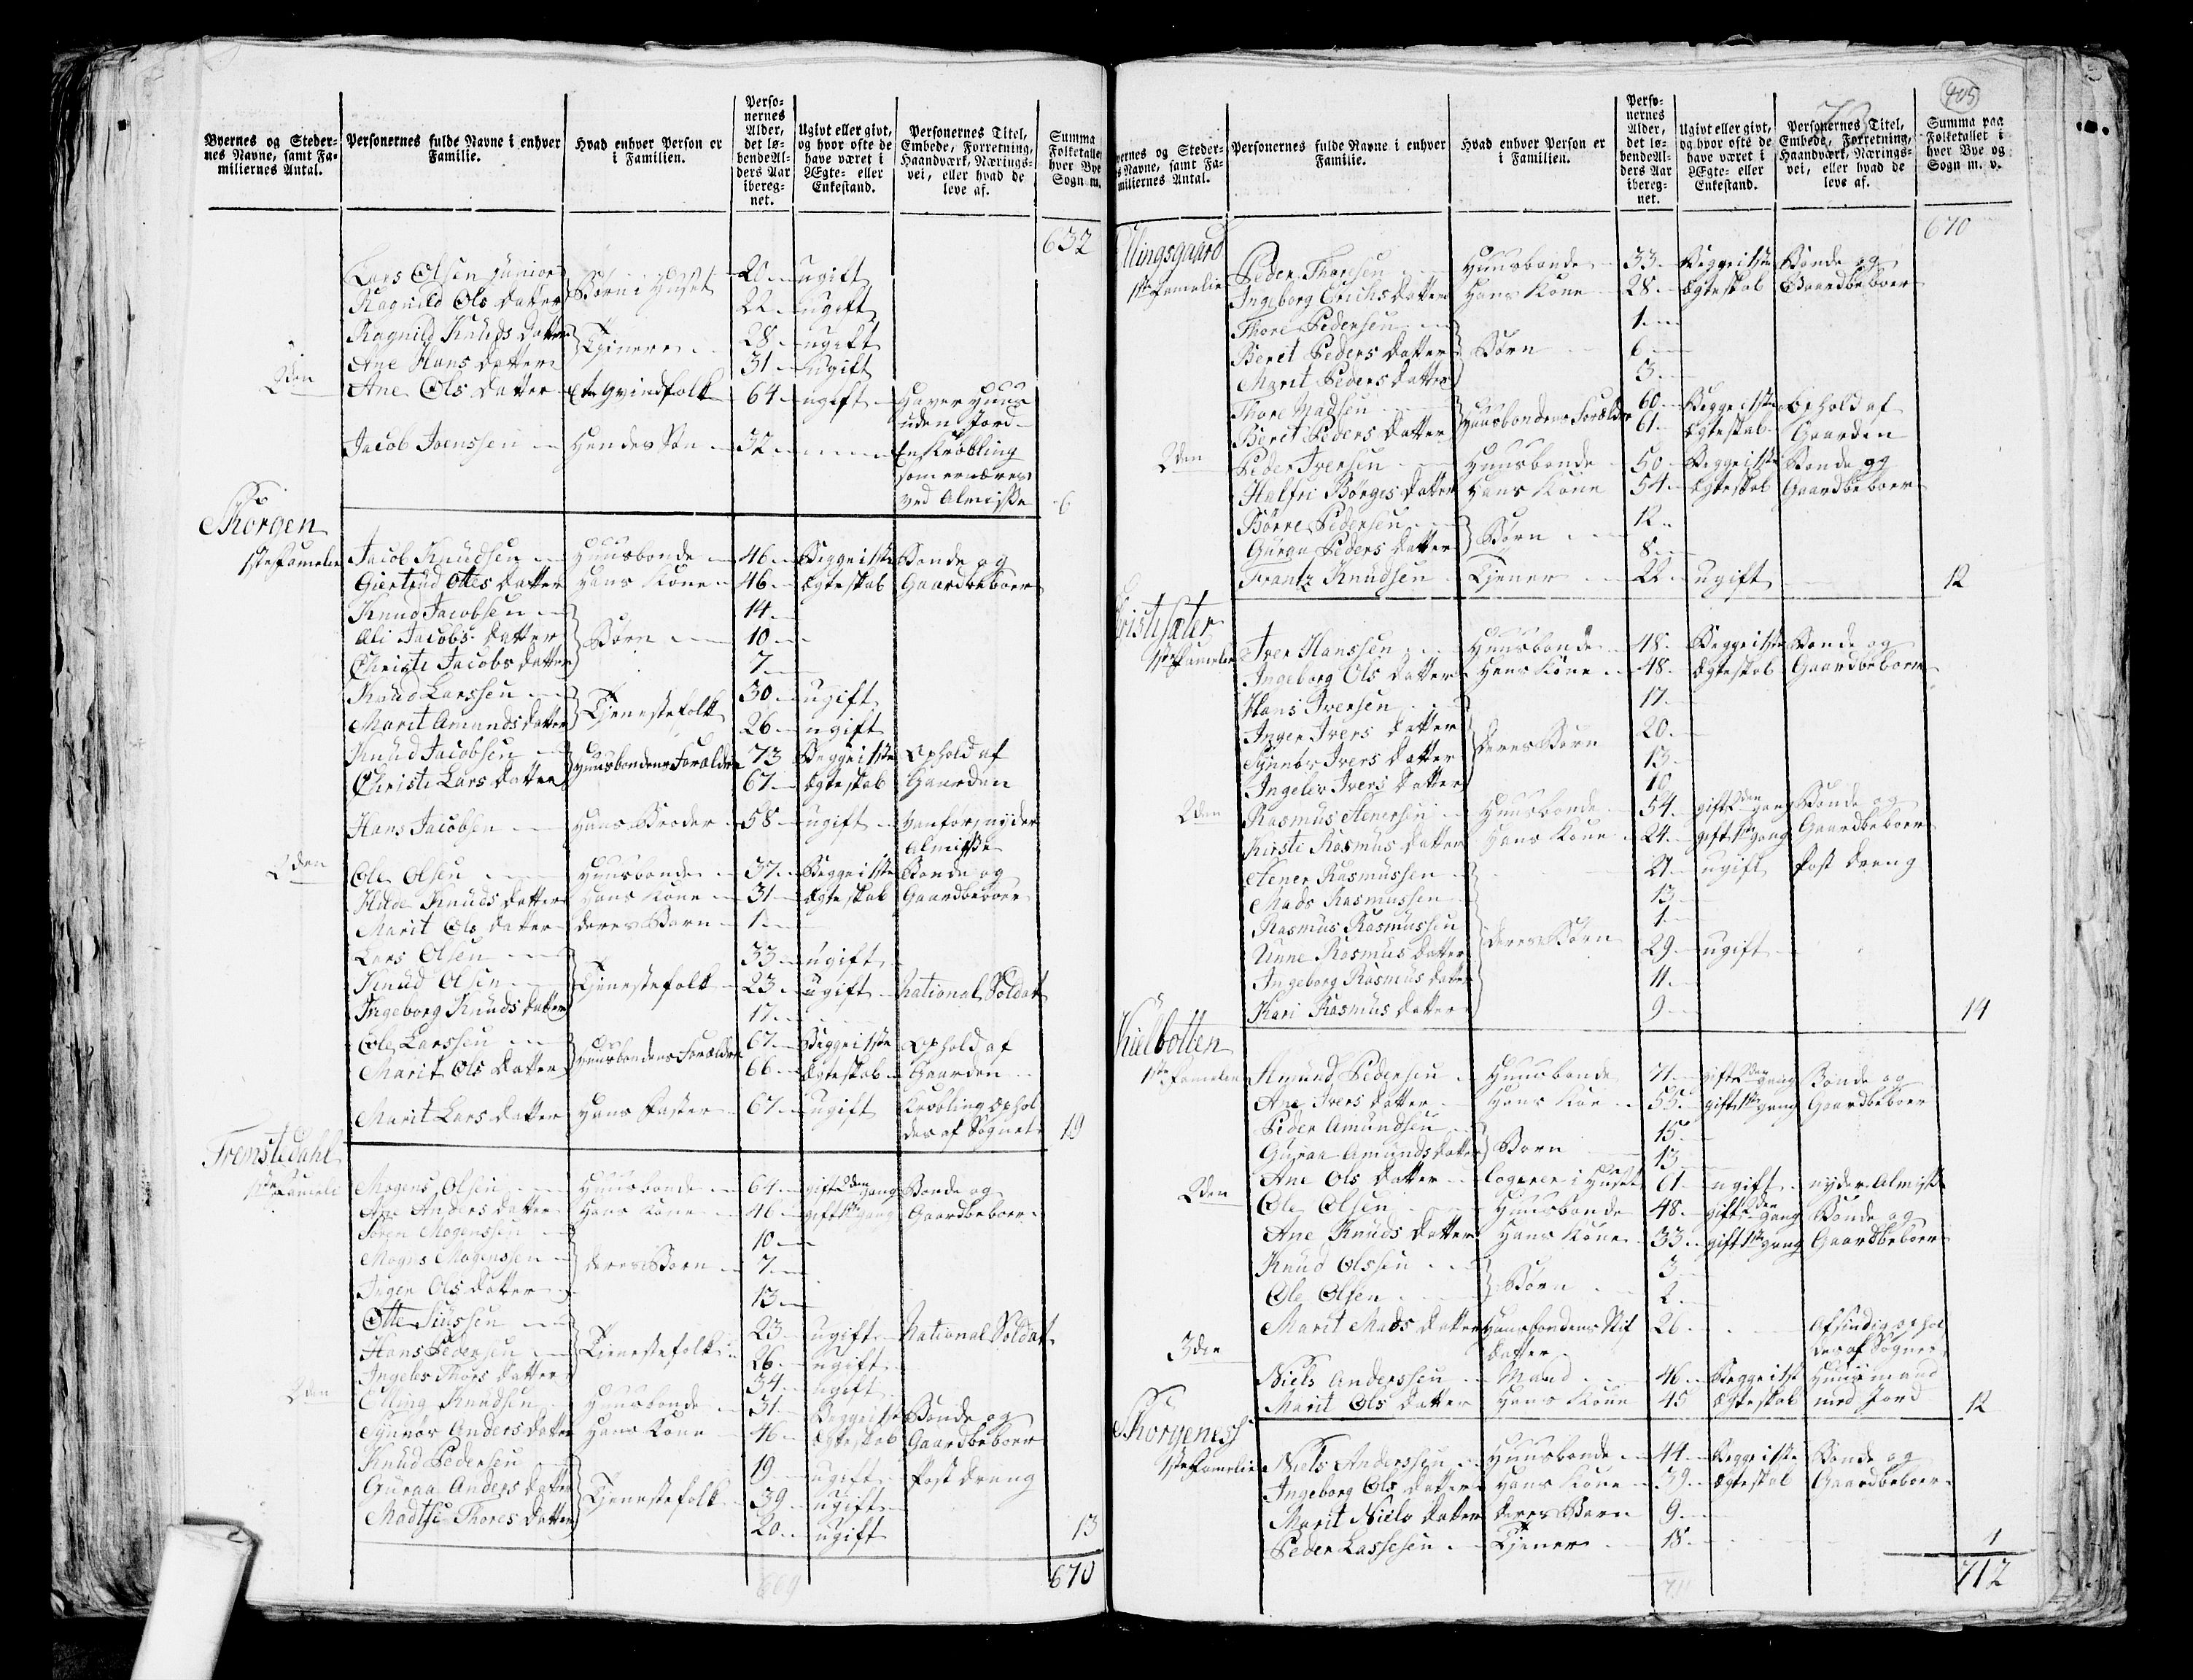 Byernes og Steder-
nes Navne, samt Fa-
miliernes Antal.
Personernes fulde Navne i enhver
Familie.
Hvad enhver Person er
i Familien.
Perso-
nernes
Alder,
det lø-
bende Al-
ders Aar
ibereg-
net.
Ugivt eller givt,
og hvor ofte de
have været i
Ægte- eller
Enkestand.
Personernes Titel,
Embede, Forretning,
Haandværk, Nærings-
vei, eller hvad de
leve af.
Summa
Folketallet
hver Bye
Sogn m.
632
Lars Olsen junior Børn i Huset 20 ugift
Ragnild Ols datter 22 ugift
Ragnild Knuds datter Tjenere 28 ugift
Ane Hans datter 31 ugift
2den Ane Ols datter Et Qvindfolk 64 ugift Haver Huus
uden Jord
Jacob Joenssen Hendes Søn 32 En Krøbling
som ernæres
ved Almisse 6
Skorgen
1ste Famelie Jacob Knudsen Huusbonde 46 Begge i 1ste Bonde og
Giertrud Ottes datter Hans Kone 46 Ægteskab Gaardbeboer
Knud Jacobsen 14
Ali Jacobs datter Børn 10
Christi Jacobs datter 7
Knud Larssen Tjenestefolk 30 ugift
Marit Amunds datter 26 ugift
Knud Jacobsen Huusbondens Forældre 73 Begge i 1ste Ophold af
Christi Lars datter 67 Ægteskab Gaarden
Hans Jacobsen Hans Broder 58 ugift Vanfør, nyder
Almisse
2den Ole Olsen Huusbonde 37 Begge i 1ste Bonde og
Hilde Knuds datter Hans Kone 31 Ægteskab Gaardbeboer
Marit Ols datter deres Barn 1
Lars Olsen 33 ugift
Knud Olsen Tjenestefolk 23 ugift National Soldat
Ingeborg Knuds datter 17
Ole Larssen Huusbondens Forældre 67 Begge i 1ste Ophold af
Marit Ols datter 66 Ægteskab Gaarden
Marit Lars datter Hans Faster 67 ugift Krøbling Ophol
des af Sognet 19
Fremstedahl
1ste Fameli Mogens Olsen Huusbonde 64 gift 2den gang Bonde og
Ane Anders datter Hans Kone 46 gift 1ste gang Gaardbeboer
Søren Mogenssen 10
Mogns Mogenssen deres Børn 7
Inger Ols datter 13
Otte Siussen 23 ugift National Soldat
Hans Pedersen Tienestefolk 26 ugift
Ingeles Thors datter 34 ugift
2den Elling Knudsen Huusbonde 31 Begge i 1ste Bonde og
Synnøv Anders datter Hans Kone 46 Ægteskab Gaardbeboer
Knud Pedersen 19 ugift Post dreng
Guraa Anders datter Tjenestefolk 39 ugift
Madtsi Thores datter 20 ugift 13
609 670
405
Byernes og Steder-
nes Navne, samt Fa-
miliernes Antal.
Personernes fulde Navne i enhver
Familie.
Hvad enhver Person er
i Familien.
Perso-
nernes
Alder,
det lø-
bende Al-
ders Aar
ibereg-
net.
Ugivt eller givt,
og hvor ofte de
have været i
Ægte- eller
Enkestand.
Personernes Titel,
Embede, Forretning,
Haandværk, Nærings-
vei, eller hvad de
leve af.
Summa paa
Folketallet i
hver Bye og
Sogn m. v.
670
Ellingsgaard
1ste Famelie Peder Thoresen Huusbonde 33 Begge i 1ste Bonde og
Ingeborg Erichs datter Hans Kone 28 Ægteskab Gaardbeboer
Thore Pedersen 1
Berit Peders datter Børn 6
Marit Peders datter 3
Thore Madsen Huusbondens Forældre 60 Begge i 1ste Ophold af
Berit Peders datter 61 Ægteskab Gaarden
2den Peder Iversen Huusbonde 50 Begge i 1ste Bonde og
Halfri Børges datter Hans Kone 54 Ægteskab Gaardbeboer
Børre Pedersen Børn 12
Guraa Peders datter 8
Frantz Knudsen Tjener 22 ugift 12
Cristisæter
1ste Famelie Iver Hanssen Huusbonde 48 Begge i 1ste Bonde og
Ingeborg Ols datter Hans Kone 48 Ægteskab Gaardbeboer
Hans Iversen 17
Inger Ivers datter deres Børn 20
Synnøv Ivers datter 13
Ingelev Ivers datter 10
2den Rasmus Stenersen Huusbonde 54 gift 2den gang Bonde og
Kirsti Rasmus datter Hans Kone 24 gift 1ste gang Gaardbeboer
Stener Rasmussen 21 ugift Post dreng
Mads Rasmussen 13
Rasmus Rasmussen 1
Unne Rasmus datter deres Børn 29 ugift
Ingeborg Rasmus datter 11
Kari Rasmus datter 9 14
Kielbotten
1ste Famelie Amund Pedersen Huusbonde 71 gift 2den gang Bonde og
Ane Ivers datter Hans Koe 55 gift 1ste gang Gaardbeboer
Peder Amundsen 15
Guraa Amunds datter Børn 13
Ane Ols datter logerer i Huset 61 ugift nyder Almisse
2den Ole Olsen Huusbonde 48 gift 2den gang Bonde og
Ane Knuds datter Hans Kone 33 gift 1ste gang Gaardbeboer
Knud Olssen 3
Ole Olsen Børn 2
Marit Mads datter Huusbondens Stif 26 Afsindig ophol
datter des af Sognet
3die Niels Anderssen Mand 46 Begge i 1ste Huusmand
Marit Ols datter Hans Kone 45 Ægteskab med Jord 12
Skorgeness
1ste Famelie Niels Anderssen Huusbonde 44 Begge i 1ste Bonde og
Ingeborg Ols datter Hans Kone 39 Ægteskab Gaardbeboer
Marit Niels datter deres Barn 9
Peder Lassesen Tjener 18 4
711 712